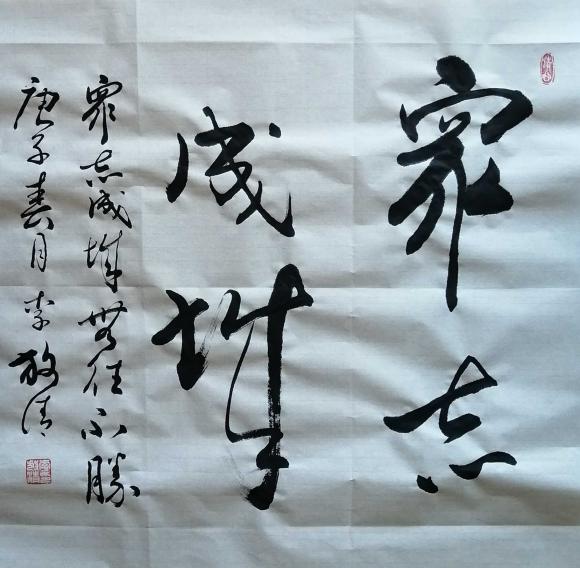 众志
成城
众志成城无往不勝
庚子春月李敬清